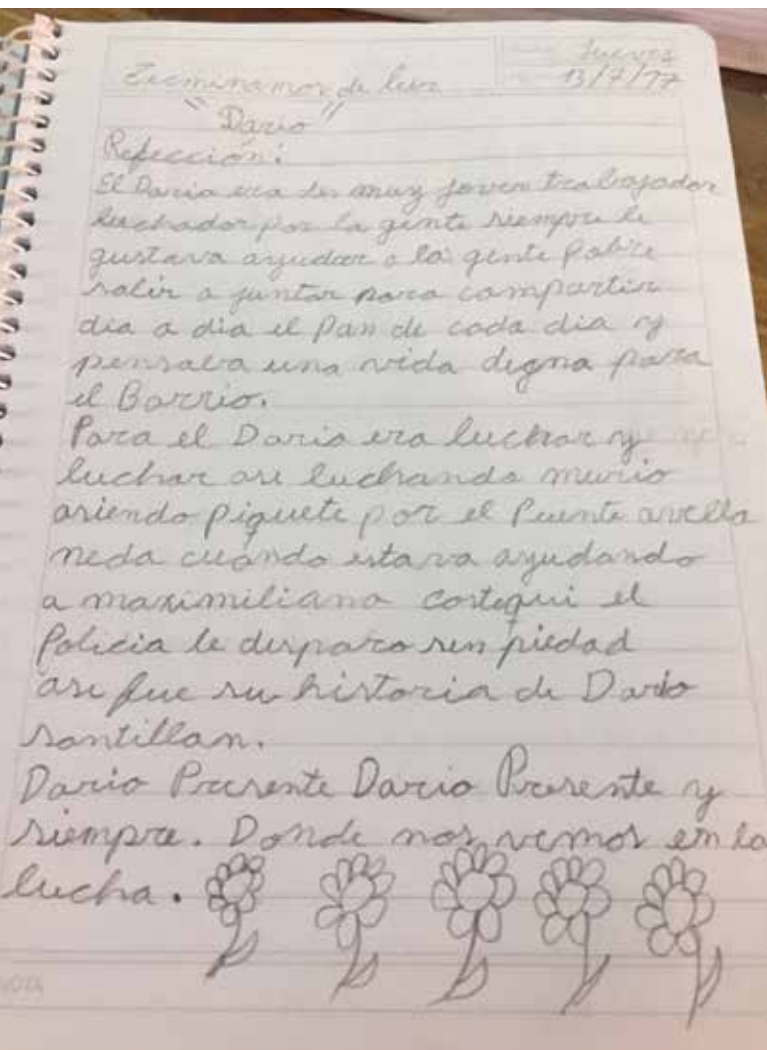 Jueves
13/7/17
Terminamos de leer
"Dario"
Refección:
El Dario era un muy joven trabajador
luchador por la gente siempre le
gustava ayudar a la gente Pobre
salir a juntar para compartir
dia a dia el Pan de cada dia y
pensava una vida digna para
el Barrio.
Para el Dario era luchar y
luchar asi luchando murio
asiendo piquete por el Puente avella
neda cuándo estava ayudando
a maximiliano costequi el
Policia le disparo sin piedad
asi fue su historia de Dario
santillan.
Dario Presente Dario Presente y
siempre. Donde nos vemos en la
lucha.